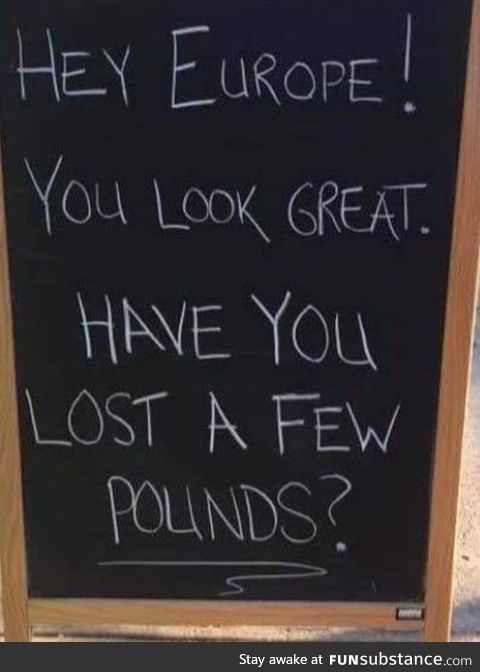 HEY EUROPE!
YOU LOOK GREAT.
HAVE YOU
LOST A FEW
POUNDS?
Stay awake at FUNsubstance.com